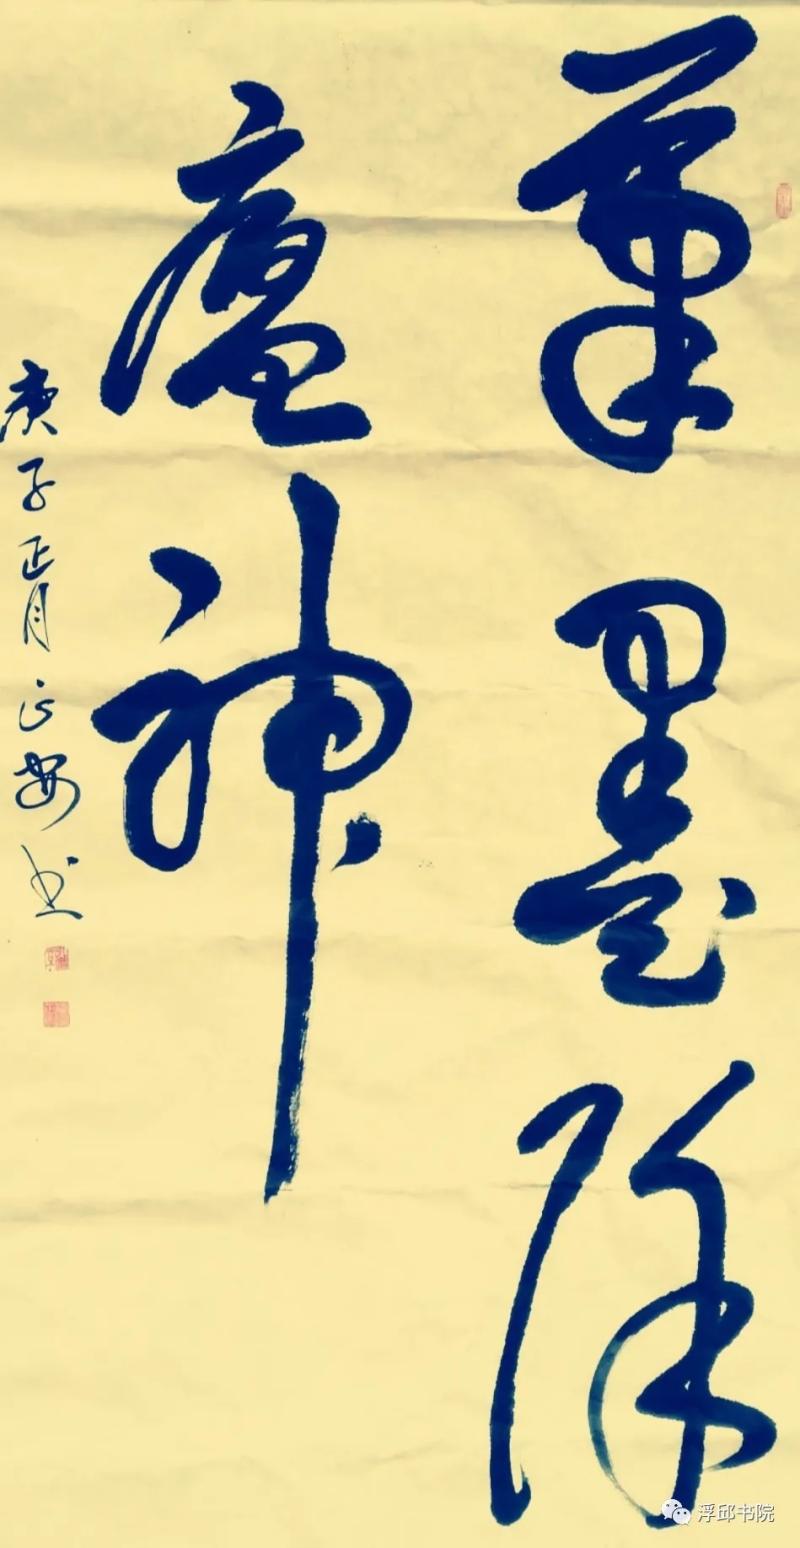 筆墨除
瘟神
庚子正月安书
浮邱书院